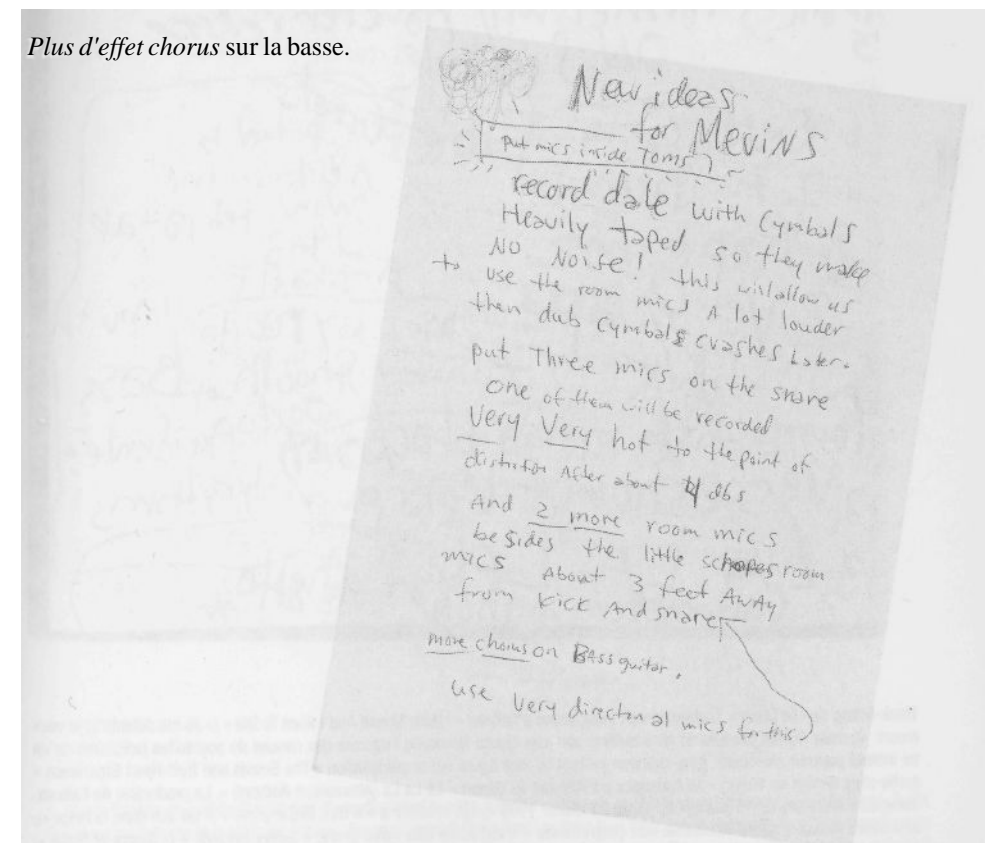 Plus d'effet chorus sur la basse.
New ideas
for MeviNS
put mics inside Toms
record date with Cymbals
Heavily taped so they make
NO NOISE! this will allow us
to use the room mics A lot louder
then dub Cymbals crashes Later.
put Three mics on the snare
one of them will be recorded
Very Very hot to the point of
After about 4 dbs
And 2 more room mics
besides the little room
mics About 3 feet AWAY
from kick And snare
more chorus on BASS guitar.
use very mics for this